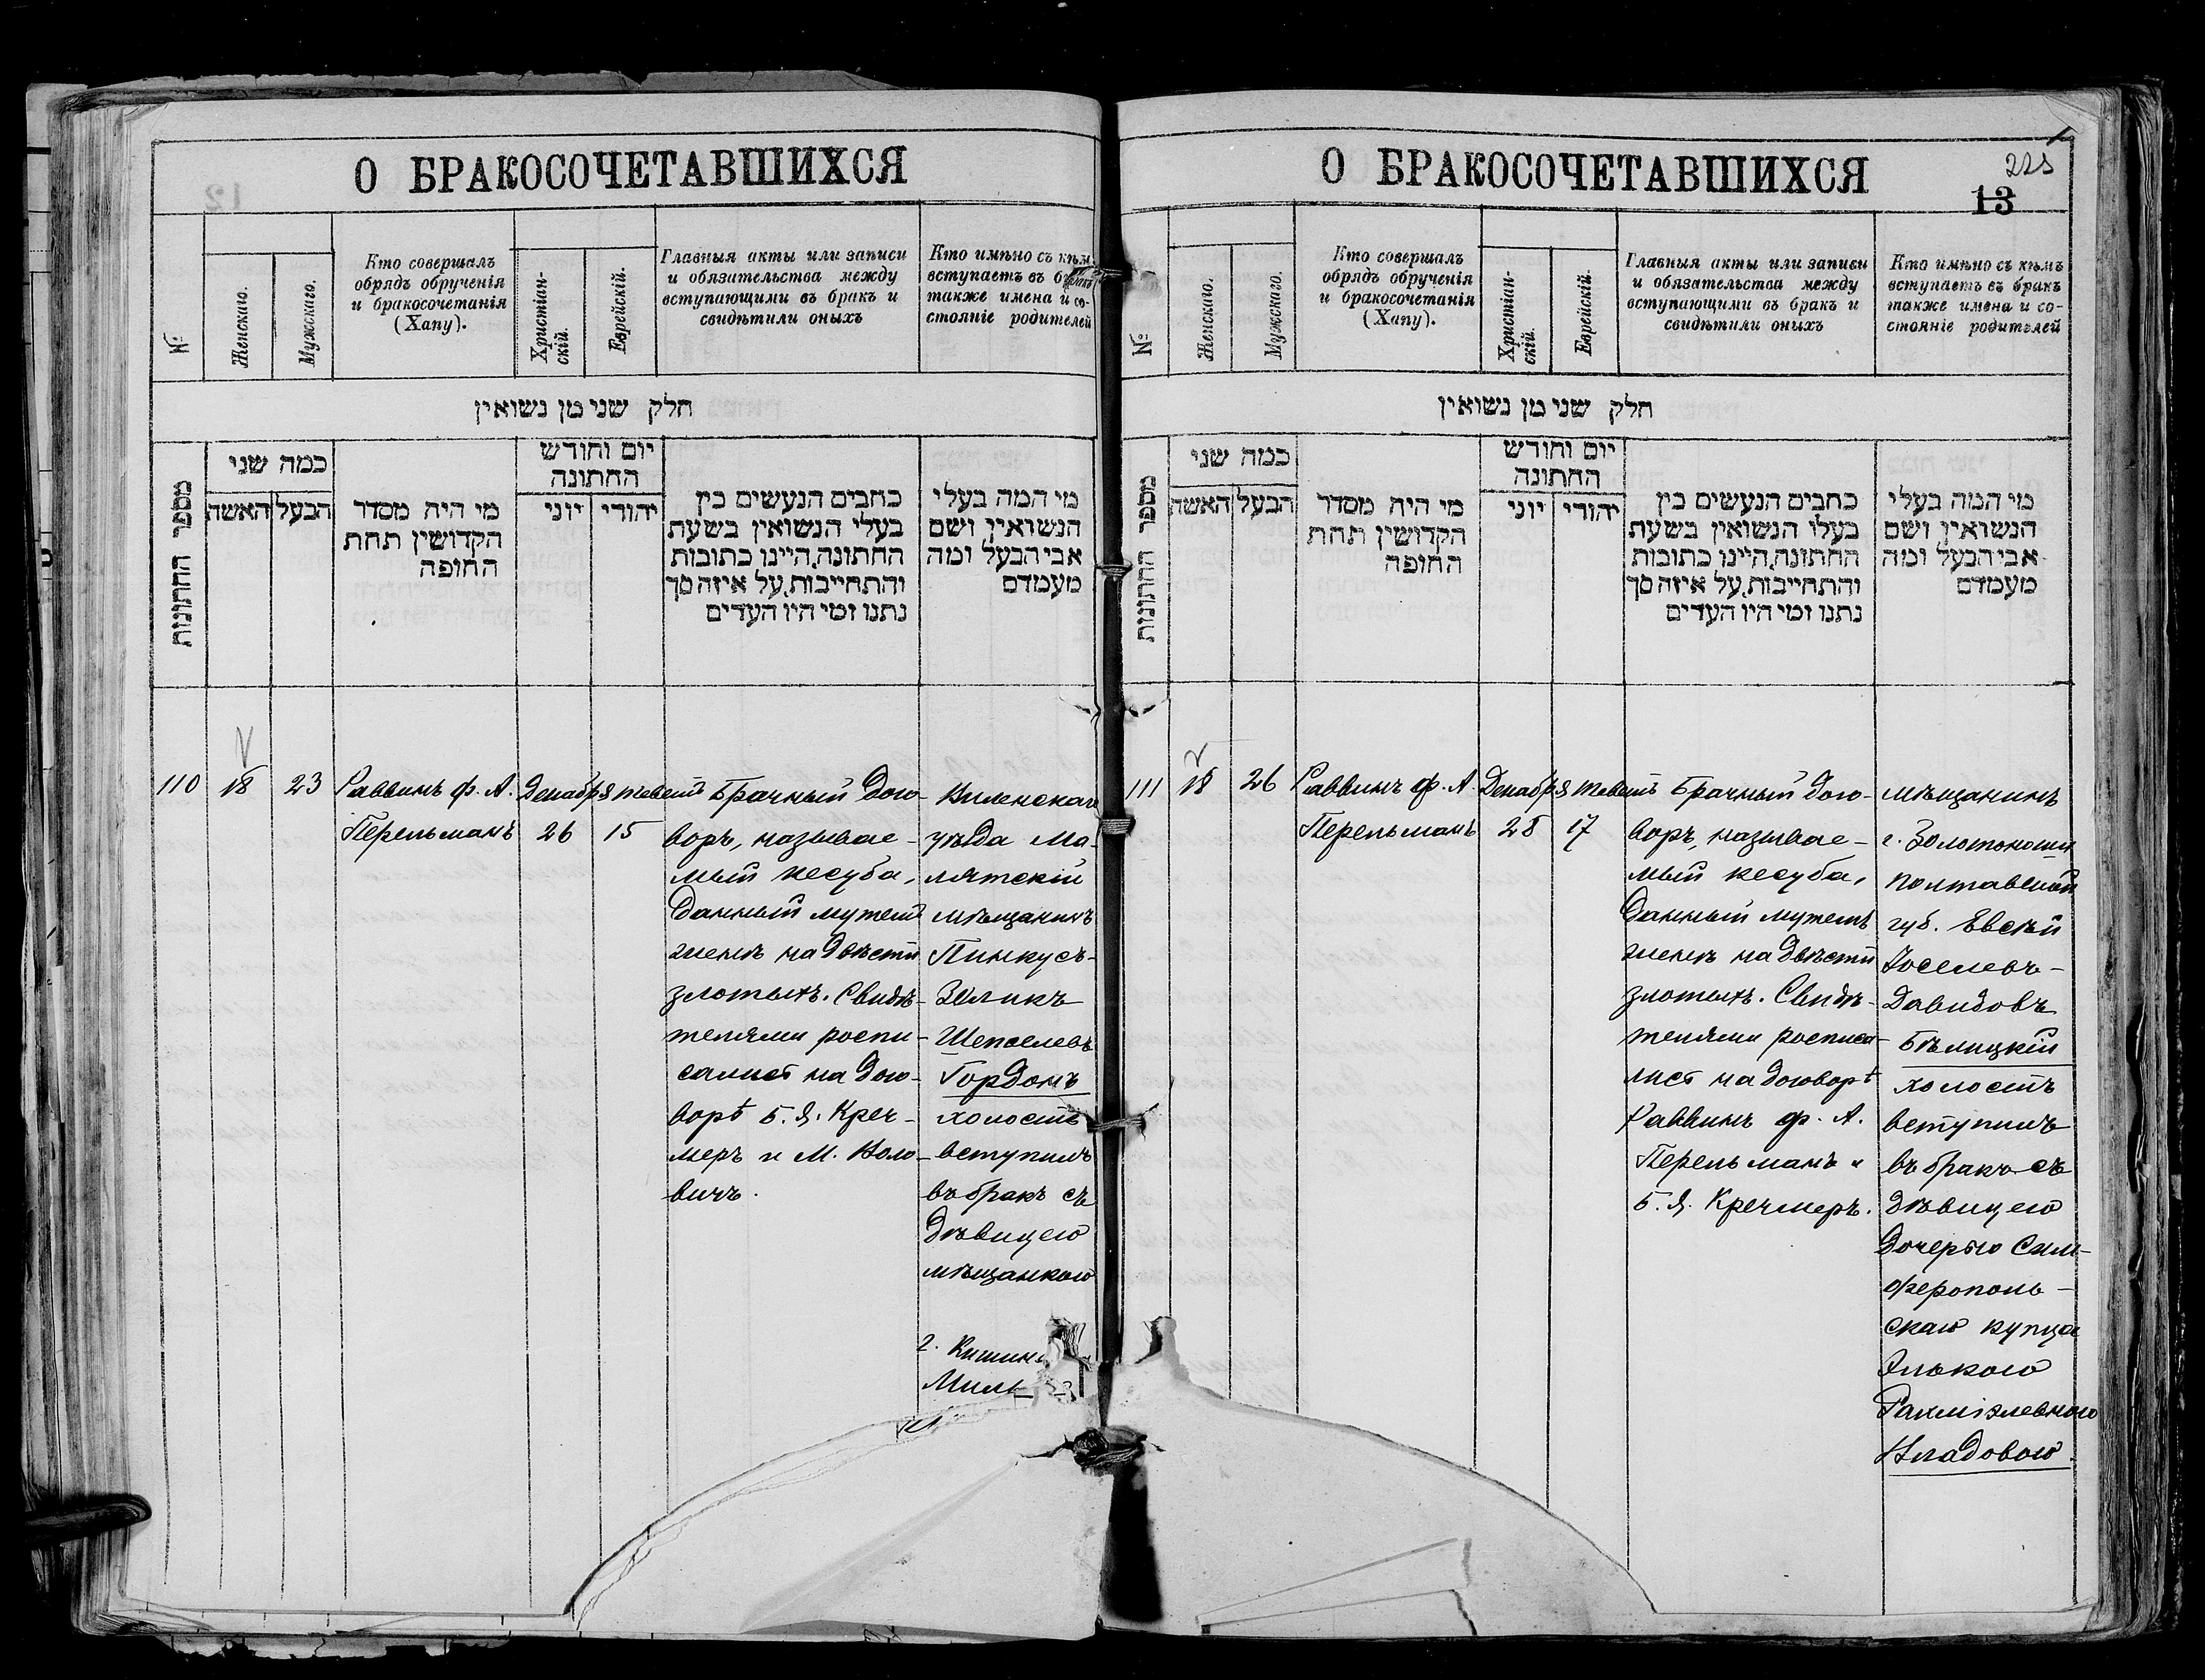 О БРАКОСОЧЕТАВШИХСЯ
№
Женскаго.
Мужскаго.
Кто совершалъ
обрядъ обрученія
и бракосочетанія
(Хапу).
Христіан-
скій.
Еврейскій.
Главныя акты или записи
и обязательства между
вступающими въ бракъ и
свидѣтили оныхъ
Кто имѣно съ кѣмъ
вступаетъ въ бракъ
также имена и со-
стояніе родителей
חלק שני מן נשואין
מספר החתונות
כמה שני
האשה
הבעל
מי היה מסדר
הקדושין תחת
החופה
יום וחודש
החתונה
יוני
יהודי
כתבים הנעשים בין
בעלי הנשואין בשעת
החתונה, היינו כתובות
והתחייבות, על איזה סך
נתנו ומי היו העדים
מי המה בעלי
הנשואין ושם
אבי הבעל ומה
מעמדם
110
18
23
Раввинъ Ф. А.
Перельманъ
Декабря
26
тевейтъ
15
Брачный дого-
воръ, называе-
мый кесуба,
данный мужемъ
женѣ на двѣсти
злотыхъ. Свидѣ-
телями роспи-
сались на дого-
ворѣ Б. Я. Креч-
меръ и М. Воло-
вичъ.
Виленскаго
уѣзда Ма-
лятскій
мѣщанинъ
Пинкусъ-
Зеликъ
Шепселевъ
Гордонъ
холостъ
вступилъ
въ бракъ съ
дѣвицею
мѣщанкою
г.
О БРАКОСОЧЕТАВШИХСЯ
225
13
№
Женскаго.
Мужскаго.
Кто совершалъ
обрядъ обрученія
и бракосочетанія
(Хапу).
Христіан-
скій.
Еврейскій.
Главныя акты или записи
и обязательства между
вступающими въ бракъ и
свидѣтили оныхъ
Кто имѣно съ кѣмъ
вступаетъ въ бракъ
также имена и со-
стояніе родителей
חלק שני מן נשואין
מספר החתונות
כמה שני
האשה
הבעל
מי היה מסדר
הקדושין תחת
החופה
יום וחודש
החתונה
יוני
יהודי
כתבים הנעשים בין
בעלי הנשואין בשעת
החתונה, היינו כתובות
והתחייבות, על איזה סך
נתנו ומי היו העדים
מי המה בעלי
הנשואין ושם
אבי הבעל ומה
מעמדם
111
18
26
Раввинъ Ф. А.
Перельманъ
Декабря
28
тевейтъ
17
Брачный дого-
воръ, называе-
мый кесуба,
данный мужемъ
женѣ на двѣсти
злотыхъ. Свидѣ-
телями росписа-
лись на договорѣ
Раввинъ Ф. А.
Перельманъ и
Б. Я. Кречмеръ.
мѣщанинъ
г. Золотоноши
Полтавской
губ. Евсѣй
Іоселевъ-
Давидовъ
Бѣлицкій
холостъ
вступилъ
въ бракъ съ
дѣвицею
дочерью Сим-
ферополь-
скаго купца
Элькою
Рахміэлевною
Кладовою.